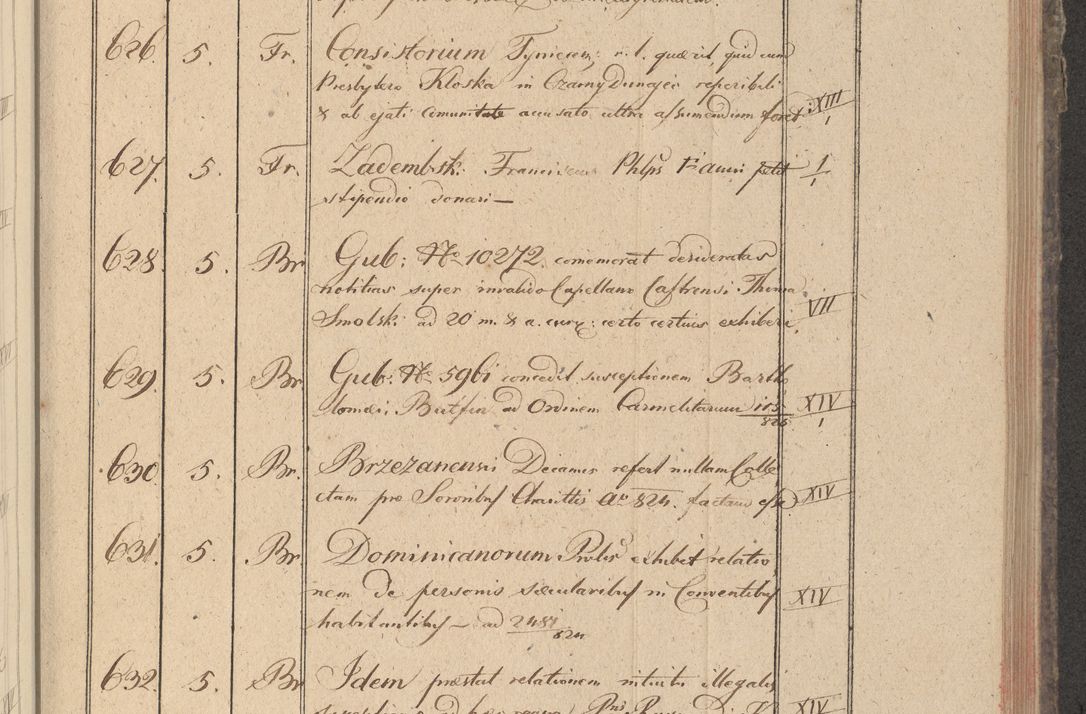 626. 5. Fr. Consistorium Tyniecen: r. l. quaerit, quid cum
Presbytero Kloska in Czarny Dunajec reperibili
& ab ejati comunitate accusato ultra assumendum foret. XIII/1
627. 5. Fr. Zadembski Franciscus Phlps 1mi anni petit I/1
stipendio donari —
628. 5. Br Gub: No 10272. comemorat desideratas
notitias super invalido Capellano Castrensi Thoma
Smolski ad 20 m. & a. curr: certo certius exhiberi. VII
629. 5. Br Gub: No 5961 concedit susceptionem Bartho
lomaei ad Ordinem Carmelitarum 115/825 XIV/1
630. 5. Br. Brzezanensis Decanus refert nullam Colle
ctam pro Sororibus Charittis Ao 824. factam esse XIV
631. 5. Br Dominicanorum exhibet relatio
nem de personis saecularibus in Conventibus XIV
habitantibus — ad 2481/824
632. 5. Br Idem praestat relationem intuitu illegalis
XIV